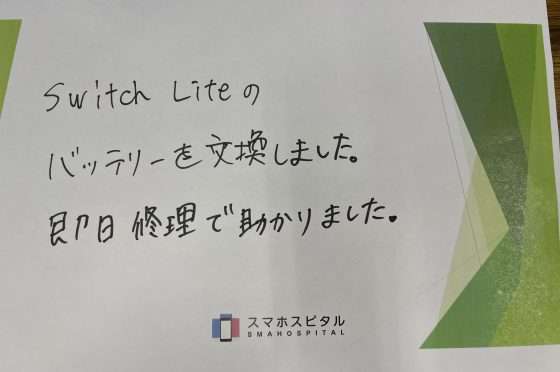 Switch Liteの
バッテリーを交換しました。
即日修理で助かりました。
スマホスピタル
SMAHOSPITAL